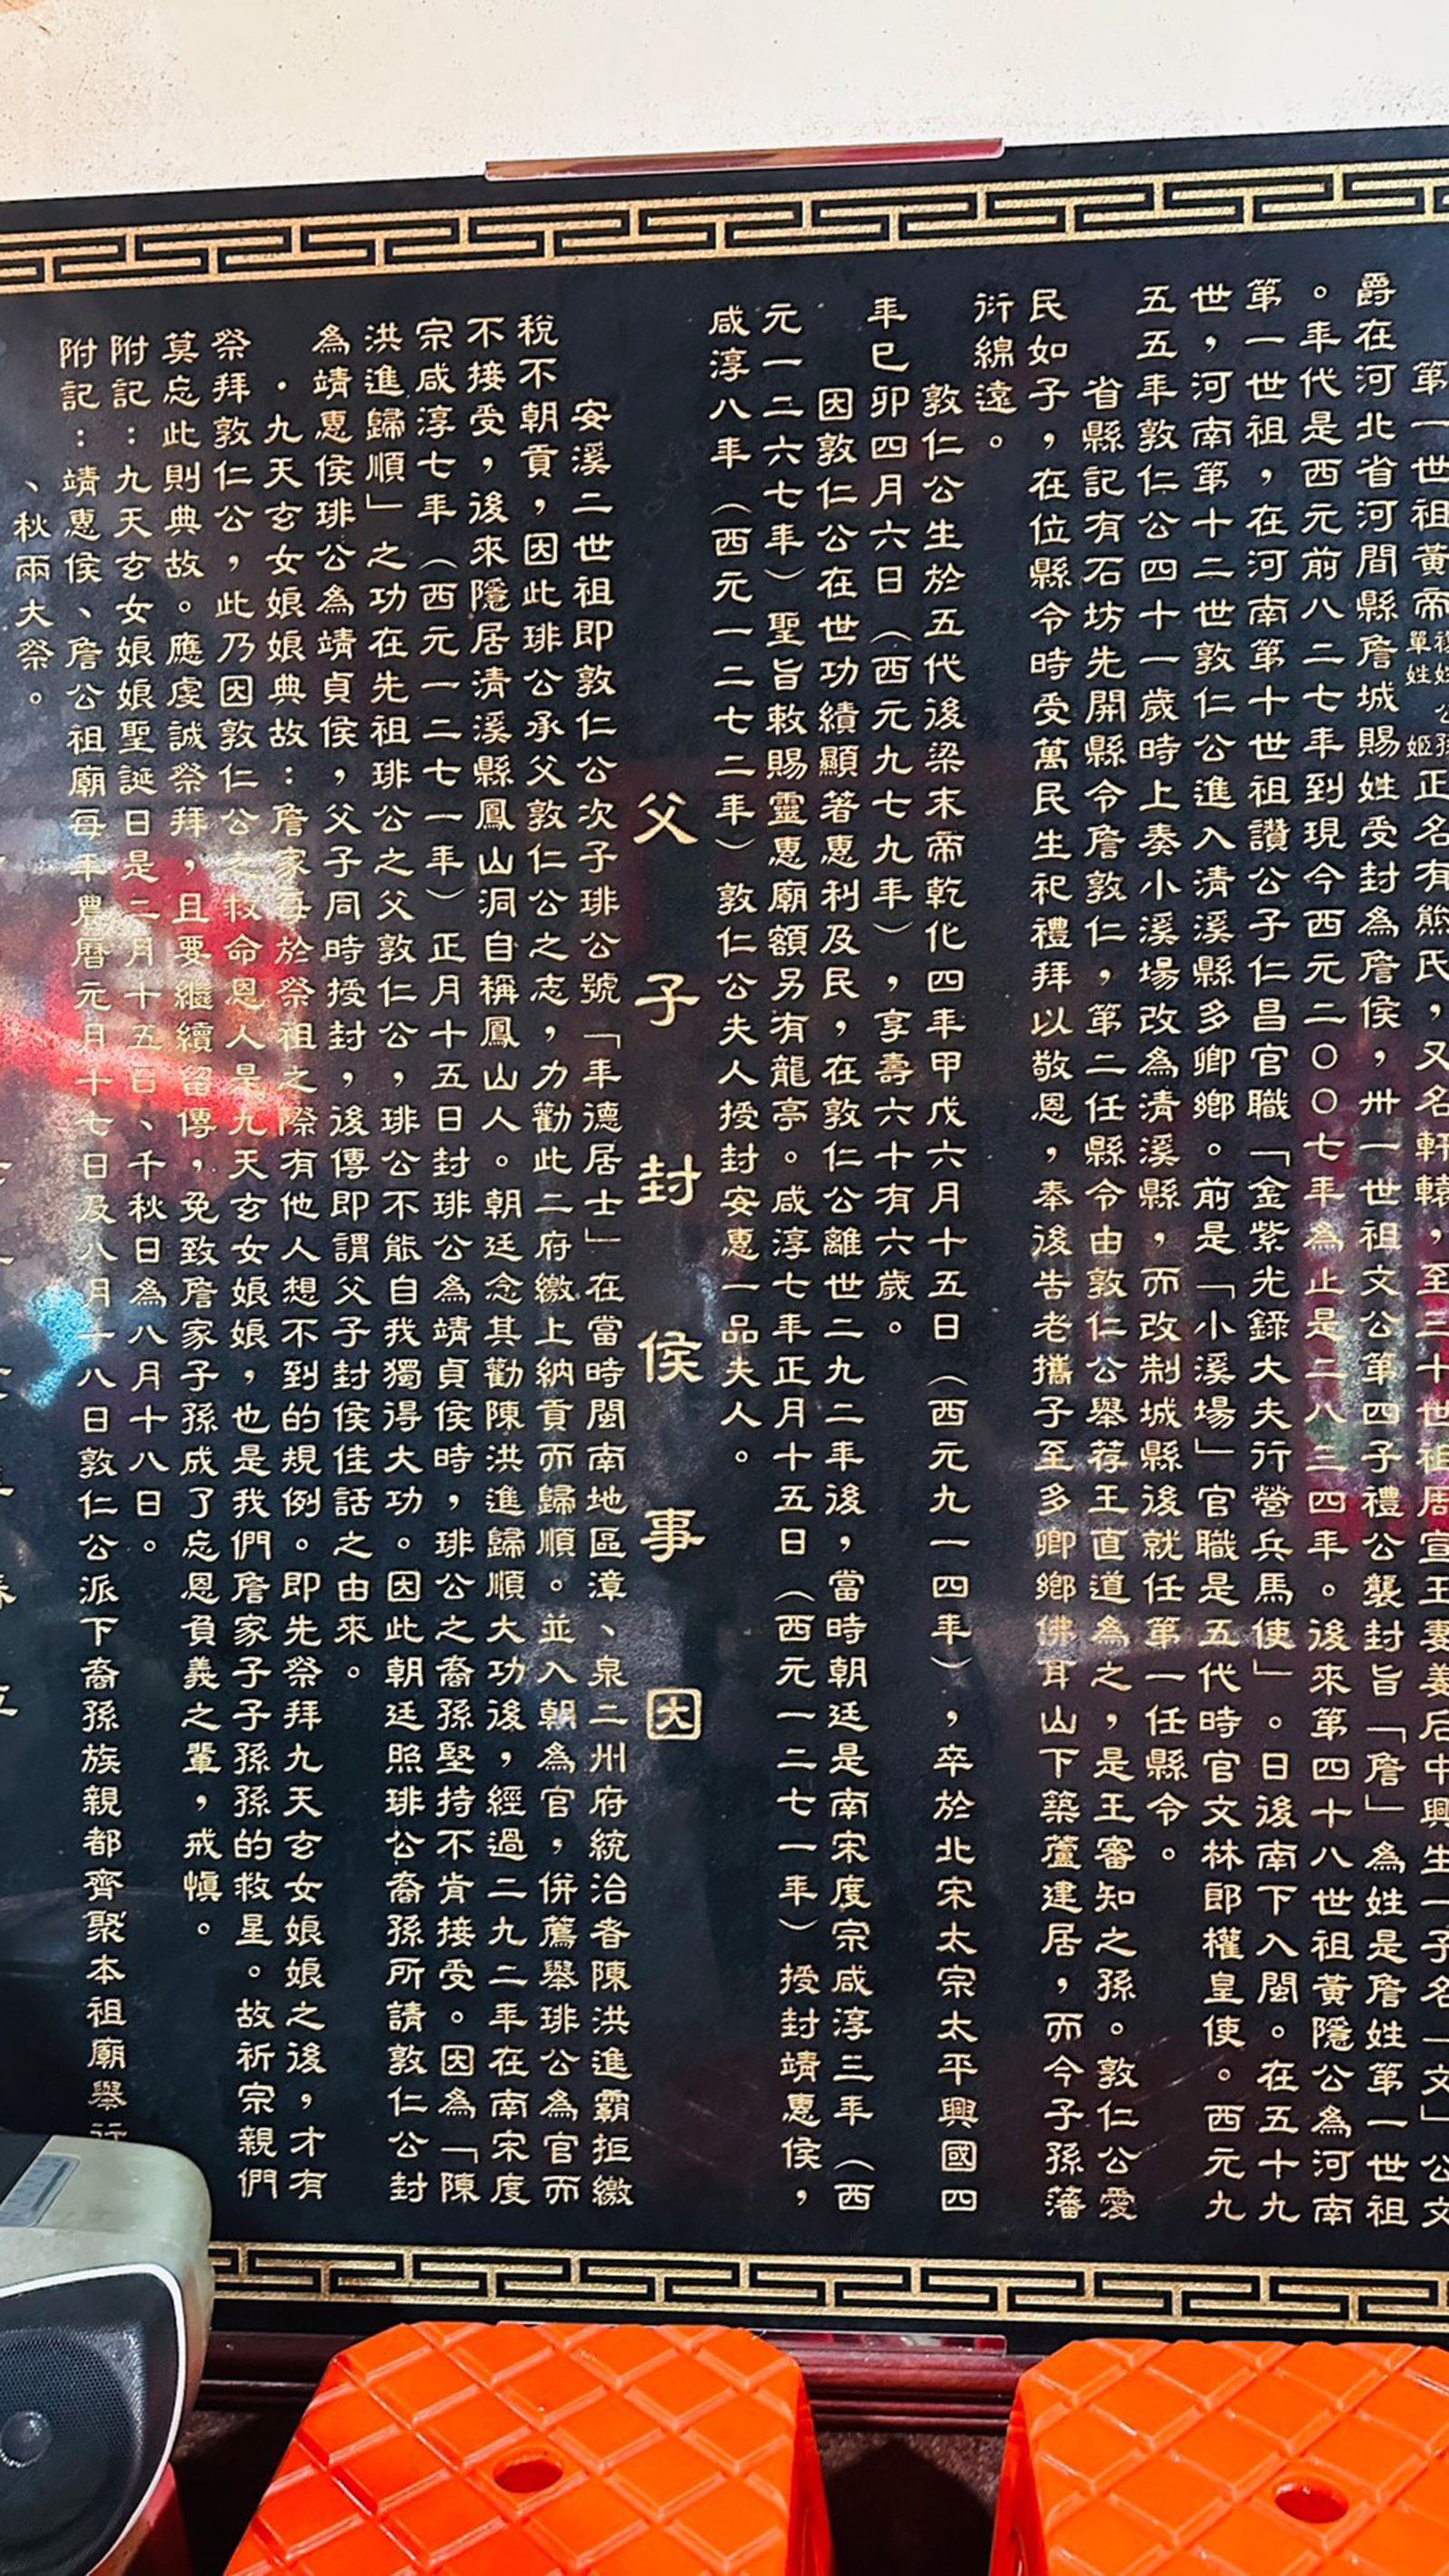 第一世祖黃帝 單姓 姬 正名有熊氏，又名軒轅，至三十世祖周宣王妻姜后中興生一子名「文」公文
爵在河北省河間縣詹城賜姓受封為詹侯，卅一世祖文公第四子禮公襲封旨「詹」為姓是詹姓第一世祖
。年代是西元前八二七年到現今西元二〇〇七年為止是二八三四年。後來第四十八世祖黃隱公為河南
第一世祖，在河南第十世祖讚公子仁昌官職「金紫光錄大夫行營兵馬使」。日後南下入閩。在五十九
世，河南第十二世敦仁公進入清溪縣多卿鄉。前是「小溪場」官職是五代時官文林郎權皇使。西元九
五五年敦仁公四十一歲時上奏小溪場改為清溪縣，而改制城縣後就任第一任縣令。
省縣記有石坊先開縣令詹敦仁，第二任縣令由敦仁公舉荐王直道為之，是王審知之孫。敦仁公愛
民如子，在位縣令時受萬民生祀禮拜以敬恩，奉後告老攜子至多卿鄉佛耳山下築蘆建居，而今子孫藩
衍綿遠。
敦仁公生於五代後梁末帝乾化四年甲戊六月十五日（西元九一四年），卒於北宋太宗太平興國四
年巳卯四月六日（西元九七九年），享壽六十有六歲。
因敦仁公在世功績顯著惠利及民，在敦仁公離世二九二年後，當時朝廷是南宋度宗咸淳三年（西
元一二六七年）聖旨敕賜靈惠廟額另有龍亭。咸淳七年正月十五日（西元一二七一年）授封靖惠侯，
咸淳八年（西元一二七二年）敦仁公夫人授封安惠一品夫人。
父子封侯事因
安溪二世祖即敦仁公次子琲公號「年德居士」在當時閩南地區漳、泉二州府統治者陳洪進霸拒繳
稅不朝貢，因此琲公承父敦仁公之志，力勸此二府繳上納貢而歸順。並入朝為官，併薦舉琲公為官而
不接受，後來隱居清溪縣鳳山洞自稱鳳山人。朝廷念其勸陳洪進歸順大功後，經過二九二年在南宋度
宗咸淳七年（西元一二七一年）正月十五日封琲公為靖貞侯時，琲公之裔孫堅持不肯接受。因為「陳
洪進歸順」之功在先祖琲公之父敦仁公，琲公不能自我獨得大功。因此朝廷照琲公裔孫所請敦仁公封
為靖惠侯琲公為靖貞侯，父子同時授封，後傳即謂父子封侯佳話之由來。
．九天玄女娘娘典故：詹家每於祭祖之際有他人想不到的規例。即先祭拜九天玄女娘娘之後，才有
祭拜敦仁公，此乃因敦仁公之救命恩人是九天玄女娘娘，也是我們詹家子子孫孫的救星。故祈宗親們
莫忘此則典故。應虔誠祭拜，且要繼續留傳，免致詹家子孫成了忘恩負義之輩，戒慎。
附記：九天玄女娘娘聖誕日是二月十五日、千秋日為八月十八日。
附記：靖惠侯、詹公祖廟每年農曆元月十七日及八月十八日敦仁公派下裔孫族親都齊聚本祖廟舉行
、秋兩大祭。